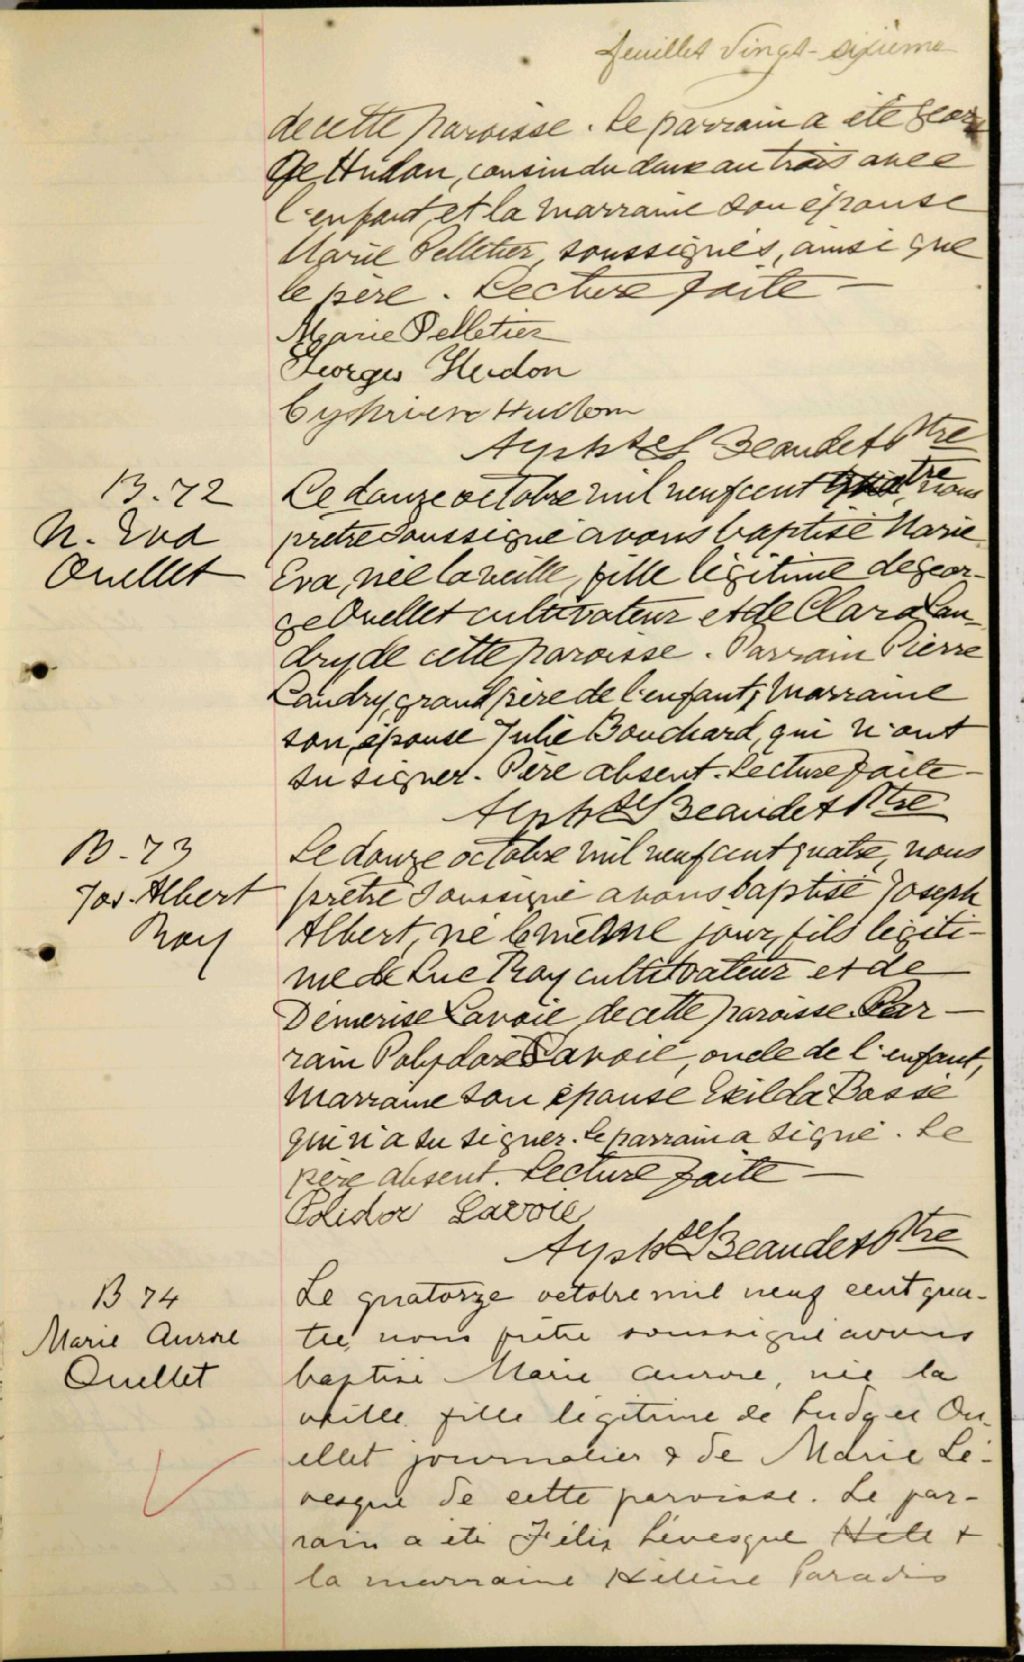 feuillet Vingt-sixième
de cette paroisse. Le parrain a été Geor
ge Hudon, cousin du deux au trois avec
l'enfant, et la marraine son épouse
Marie Pelletier, soussignés, ainsi que
le père. Lecture faite —
Marie Pelletier
Georges Hudon
Cyprien Hudon
Alph. Beaudet Ptre
B. 72
M. Eva
Ouellet
Le douze octobre mil neuf cent quatre nous
prêtre soussigné avons baptisé Marie
Eva, née la veille, fille légitime de Geor-
ge Ouellet cultivateur et de Clara Lan-
dry de cette paroisse. Parrain Pierre
Landry, grand père de l'enfant; marraine
son épouse Julie Bouchard, qui n'ont
su signer. Père absent. Lecture faite —
Alph. Beaudet Ptre
B. 73
Jos. Albert
Roy
Le douze octobre mil neuf cent quatre, nous
prêtre soussigné avons baptisé Joseph
Albert, né le même jour, fils légiti-
me de Luc Roy cultivateur et de
Démerise Lavoie de cette paroisse. Par —
rain Polydore Lavoie, oncle de l'enfant,
marraine son épouse Exilda Bossé
qui n'a su signer. Le parrain a signé. Le
père absent. Lecture faite —
Polidor Lavoie
Alph. Beaudet Ptre
B 74
Marie Aurore
Ouellet
Le quatorze octobre mil neuf cent qua-
tre, nous prêtre soussigné avons
baptisé Marie Aurore, née la
veille, fille légitime de Ludger Ou-
ellet journalier & de Marie Lé-
vesque de cette paroisse. Le par-
rain a été Félix Lévesque Hele &
la marraine Hélène Paradis